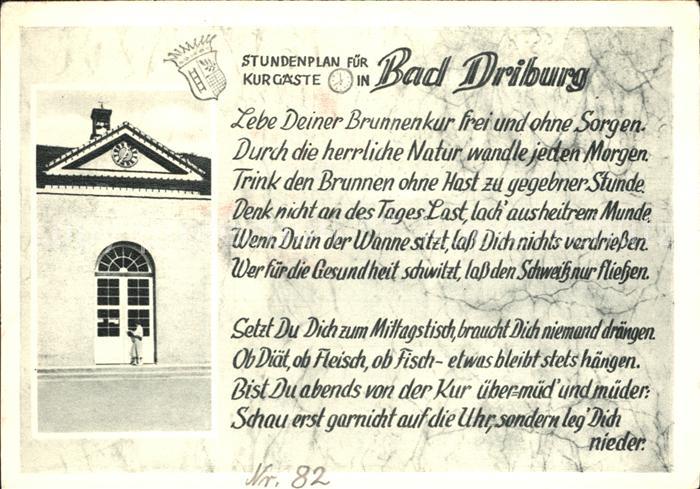 STUNDENPLAN FÜR
KURGÄSTE IN Bad Driburg
Lebe Deiner Brunnenkur frei und ohne Sorgen.
Durch die herrliche Natur wandle jeden Morgen.
Trink den Brunnen ohne Hast zu gegebner Stunde.
Denk nicht an des Tages Last, lach' aus heitrem Munde.
Wenn Du in der Wanne sitzt, laß Dich nichts verdrießen.
Wer für die Gesundheit schwitzt, laß den Schweiß nur fließen.
Setzt Du Dich zum Mittagstisch, braucht Dich niemand drängen.
Ob Diät, ob Fleisch, ob Fisch - etwas bleibt stets hängen.
Bist Du abends von der Kur über=müd' und müder:
Schau erst garnicht auf die Uhr, sondern leg' Dich
nieder.
Nr. 82